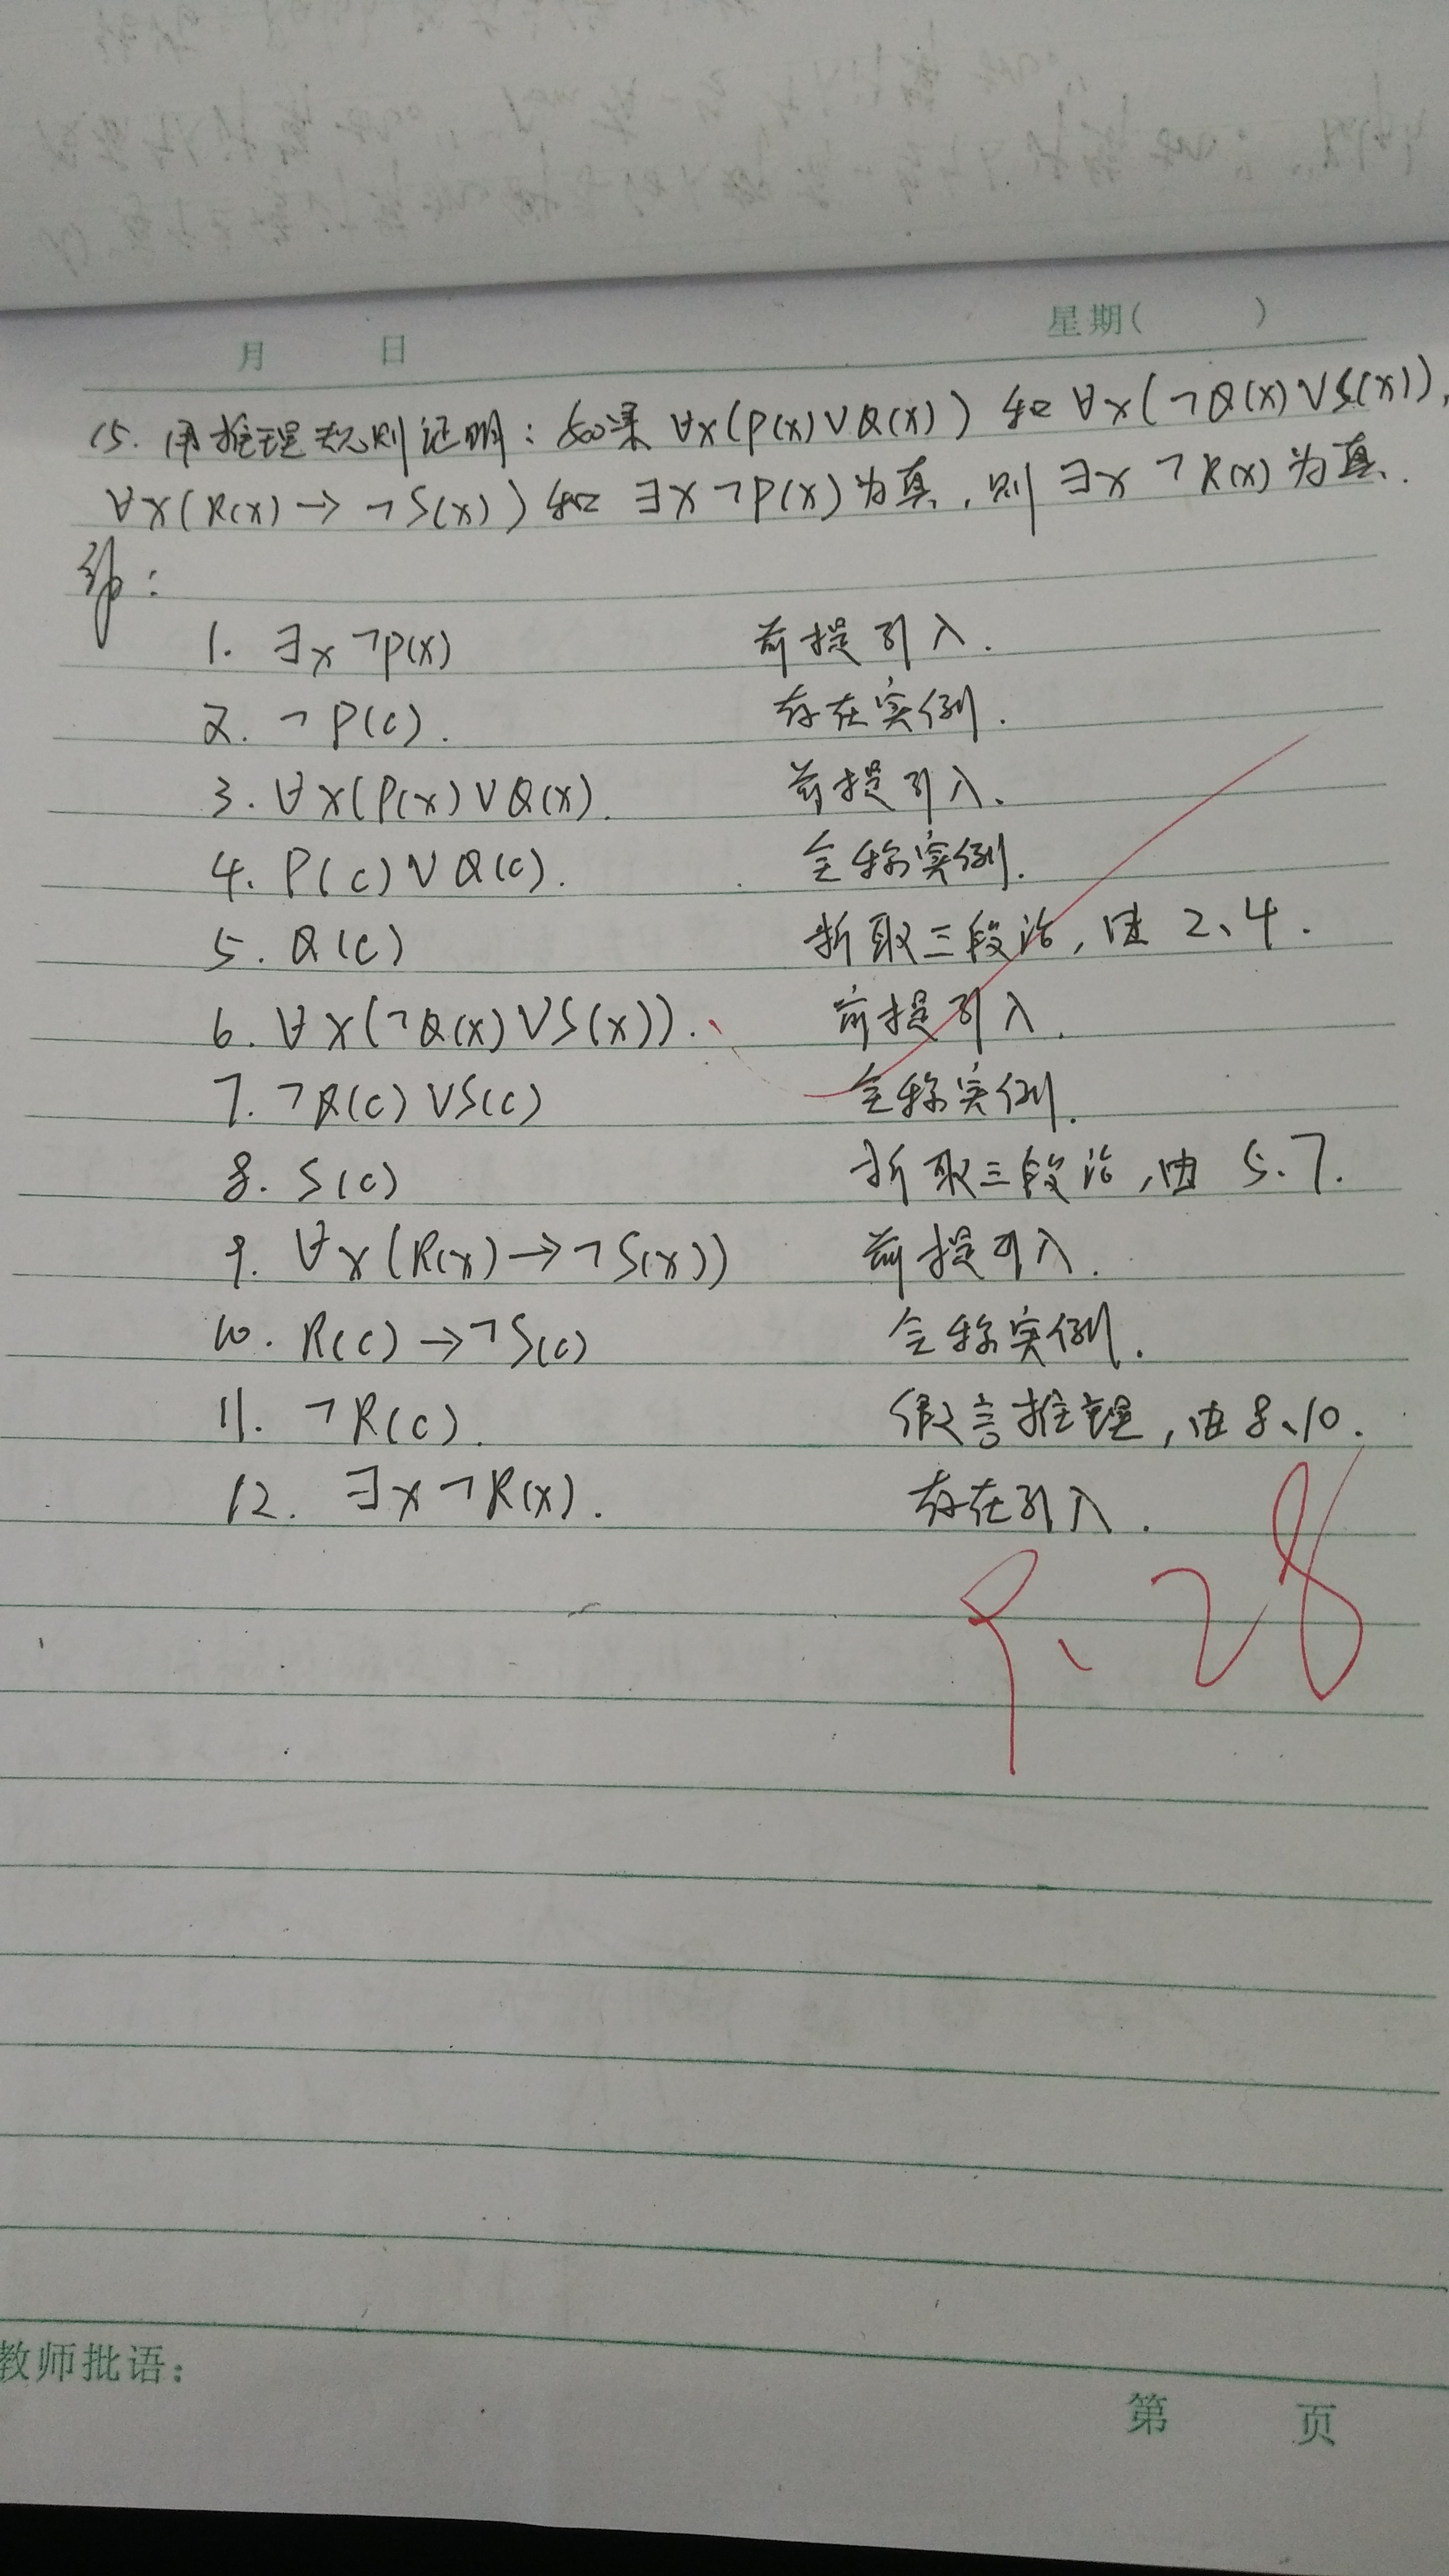 月 日 星期( )
15. 用推理规则证明：如果 ∀x(P(x)∨Q(x)) 和 ∀x(¬Q(x)∨S(x)),
∀x(R(x)→¬S(x)) 和 ∃x¬P(x)为真，则 ∃x¬R(x)为真.
解：
1. ∃x¬P(x) 前提引入.
2. ¬P(c). 存在实例.
3. ∀x(P(x)∨Q(x). 前提引入.
4. P(c)∨Q(c). 全称实例.
5. Q(c) 析取三段论, 由 2、4.
6. ∀x(¬Q(x)∨S(x)). 前提引入.
7. ¬Q(c)∨S(c) 全称实例.
8. S(c) 析取三段论, 由 5.7.
9. ∀x(R(x)→¬S(x)) 前提引入.
10. R(c)→¬S(c) 全称实例.
11. ¬R(c). 假言推理, 由8、10.
12. ∃x¬R(x). 存在引入.
9.28
教师批语：
第 页